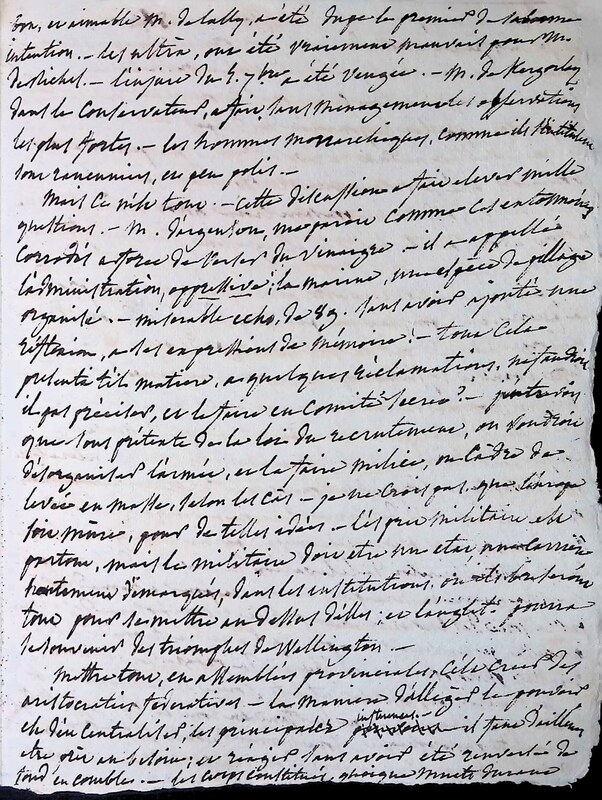 bon, et aimable M. de Lally, a été dupe le premier de sa bonne
intention. – les ultra, ont été vraiement mauvais pour M.
de Richel. – l'injure du 5. 7bre a été vengée. – M. de Kergorlay
dans le Conservateur, a fait, sans menagement les observations
les plus fortes. – les hommes monarchiques, comme ils s'intitulent
sont rancuniers, et peu polis. –
Mais ce n'est tout. – Cette discussion a fait elever mille
questions. – M. d'argenson, me paroit comme ces entonnoirs
corrodés a force de verser du vinaigre. – il a appellé
l'administration, oppressive; la marine, une espèce de pillage
organisé. – miserable echo, de 89. sans avoir ajouté une
réflexion, a des expressions de mémoire! – tout cela
présenta t'il matiere, a quelques réclamations, ne faudroit
il pas préciser, et le faire en comité secret? –
que sous prétexte de la loi du recrutement, on voudroit
désorganiser l'armée, et la faire milice, ou cadre de
levée en masse, selon les cas – je ne crois pas, que l'europe
soit mûrie, pour de telles idées. – l'esprit militaire est
partout, mais le militaire doit etre un etat, une carrière
hautement démarquée, dans les institutions, ou ils briseront
tout pour se mettre au dessus d'elles; et l'anglet.
le souvenir des triomphes de Wellington –
Mettre tout, en assemblées provinciales, cela créer des
aristocraties fédératives – la maniere d'alléger le pouvoir
est d'en centraliser, les principales influences – il faut d'ailleurs
etre au besoin; et réagir sans avoir été renversé de
fond en combles. – les corps constitués, quoique muets durant